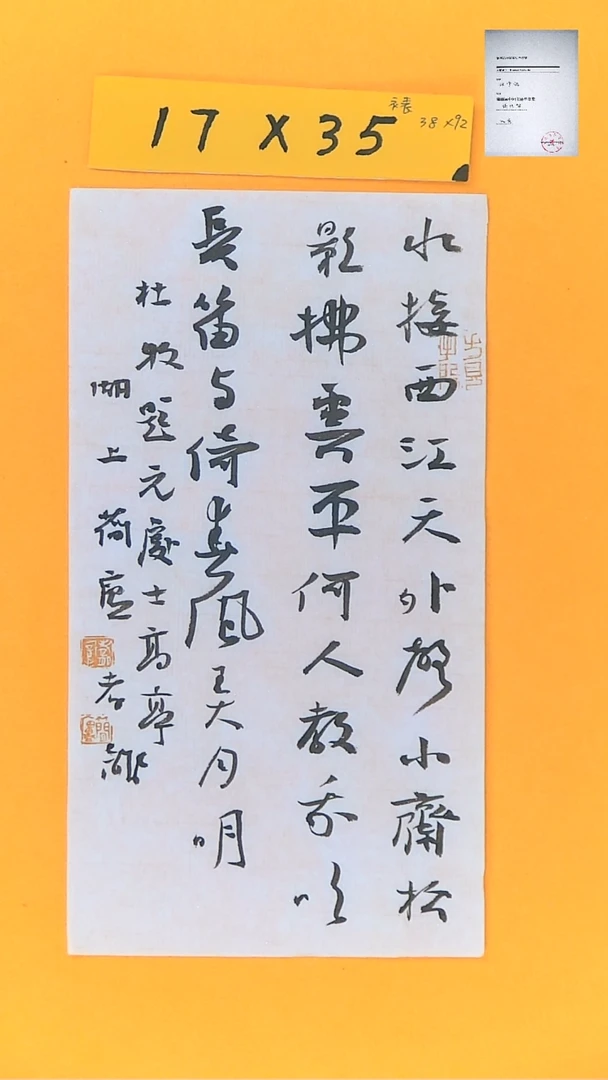 17 X 35
裱 38 X92
水接西江天外聲小齋松
影拂雲平何人教我吹
長笛与倚春風弄月明
杜牧題元處士高亭
湖上荷廬孝